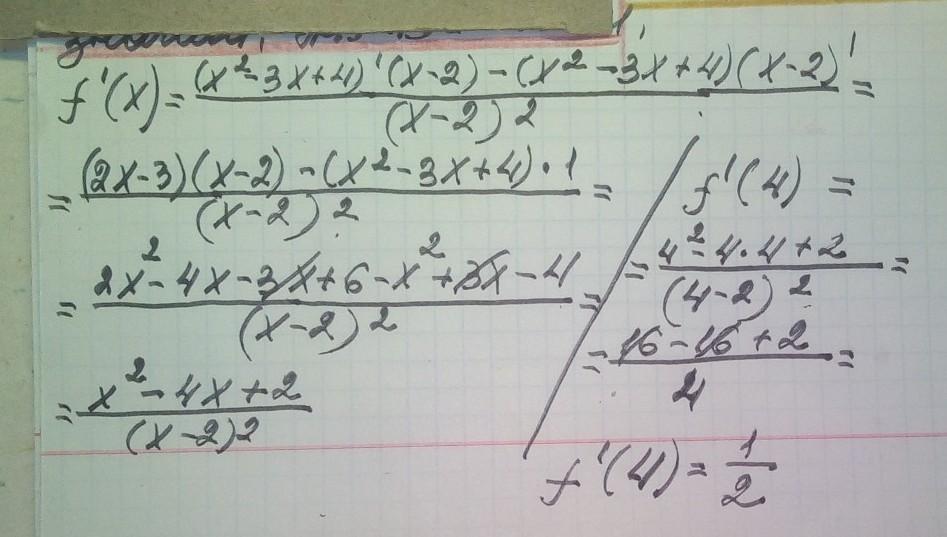 f'(x) = ((x²-3x+4)'(x-2) - (x²-3x+4)(x-2)')/(x-2)² =
= ((2x-3)(x-2) - (x²-3x+4)·1)/(x-2)² =
= (2x²-4x-3x+6-x²+3x-4)/(x-2)² =
= (x²-4x+2)/(x-2)²
f'(4) =
= (4²-4·4+2)/(4-2)² =
= (16-16+2)/4 =
f'(4) = 1/2